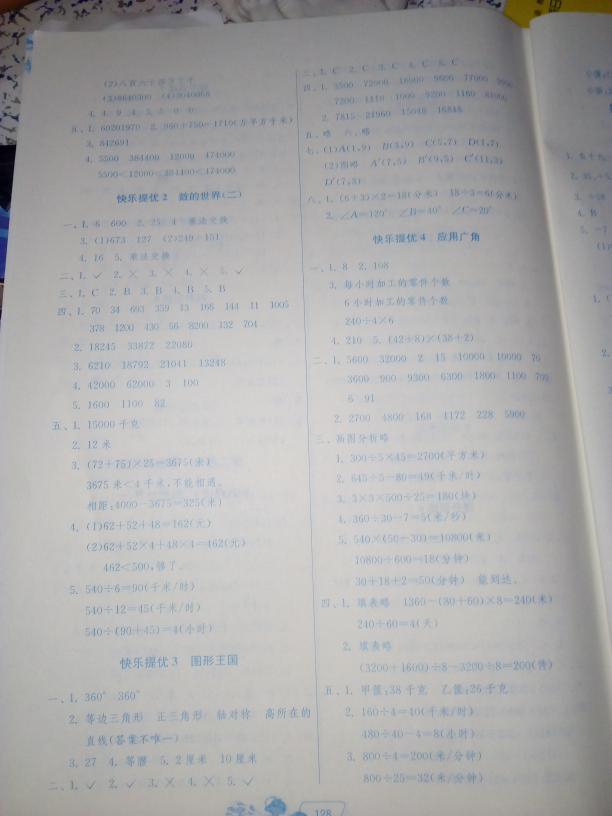 (2)八百六十四万零千
(3)8640000 (4)8040068
4. 4 9 4 5 5 0 0
五、1. 60201970 2. 960+750=1710(万平方千米)
3. 842691
4. 5500 384400 12000 474000
5500<12000<384400<474000
快乐提优2 数的世界(二)
一、1. 6 600 2. 25 4 乘法交换
3. (1)673 127 (2)249 151
4. 16 5. 乘法交换
二、1. ✓ 2. ✕ 3. ✕ 4. ✕ 5. ✓
三、1. C 2. B 3. B 4. B 5. B
四、1. 70 34 693 359 13 168 144 11 1005
378 1200 430 56 8200 132 704
2. 18245 33872 22080
3. 6210 18792 21041 13248
4. 42000 62000 3 100
5. 1600 1100 82
五、1. 15000千克
2. 12米
3. (72+75)×25=3675(米)
3675米<4千米,不能相遇。
相距:4000-3675=325(米)
4. (1)62+52+48=162(元)
(2)62+52×4+48×4=462(元)
462<500,够了。
5. 540÷6=90(千米/时)
540÷12=45(千米/时)
540÷(90+45)=4(小时)
快乐提优3 图形王国
一、1. 360° 360°
2. 等边三角形 正三角形 轴对称 高所在的
直线(答案不唯一)
3. 27 4. 等腰 5. 2厘米 10厘米
二、1. ✓ 2. ✓ 3. ✕ 4. ✕ 5. ✓
三、1. C 2. C 3. C 4. C 5. C
四、1. 3500 72000 16000 9600 77000
7200 1110 1000 9200 1160 81000
2. 7815 21960 15048 16848
五、略 六、略
七、(1)A(1,9) B(3,9) C(5,7) D(1,7)
(2)图略 A′(7,5) B′(9,5) C′(11,3)
D′(7,3)
八、1. (6+3)×2=18(分米) 18÷3=6(分米)
2. ∠A=120° ∠B=40° ∠C=20°
快乐提优4 应用广角
一、1. 8 2. 108
3. 每小时加工的零件个数
6小时加工的零件个数
240÷4×6
4. 210 5. (42÷8)×(38+2)
二、1. 5600 32000 2 15 10000 10000 70
3600 900 9300 6300 1800 1100 700
6 91
2. 2700 4800 168 4172 228 5900
三、画图分析略
1. 300÷5×45=2700(平方米)
2. 645÷5-80=49(千米/时)
3. 3×3×500÷25=180(块)
4. 360÷30-7=5(米/秒)
5. 540×(50-30)=10800(米)
10800÷600=18(分钟)
30+18+2=50(分钟) 能到达。
四、1. 填表略 1360-(80+60)×8=240(米)
240÷60=4(天)
2. 填表略
(3200+1600)÷8-3200÷8=200(件)
五、1. 甲筐:38千克 乙筐:26千克
2. 160÷4=40(千米/时)
480÷40-4=8(小时)
3. 800÷4=200(米/分钟)
800÷25=32(米/分钟)
128